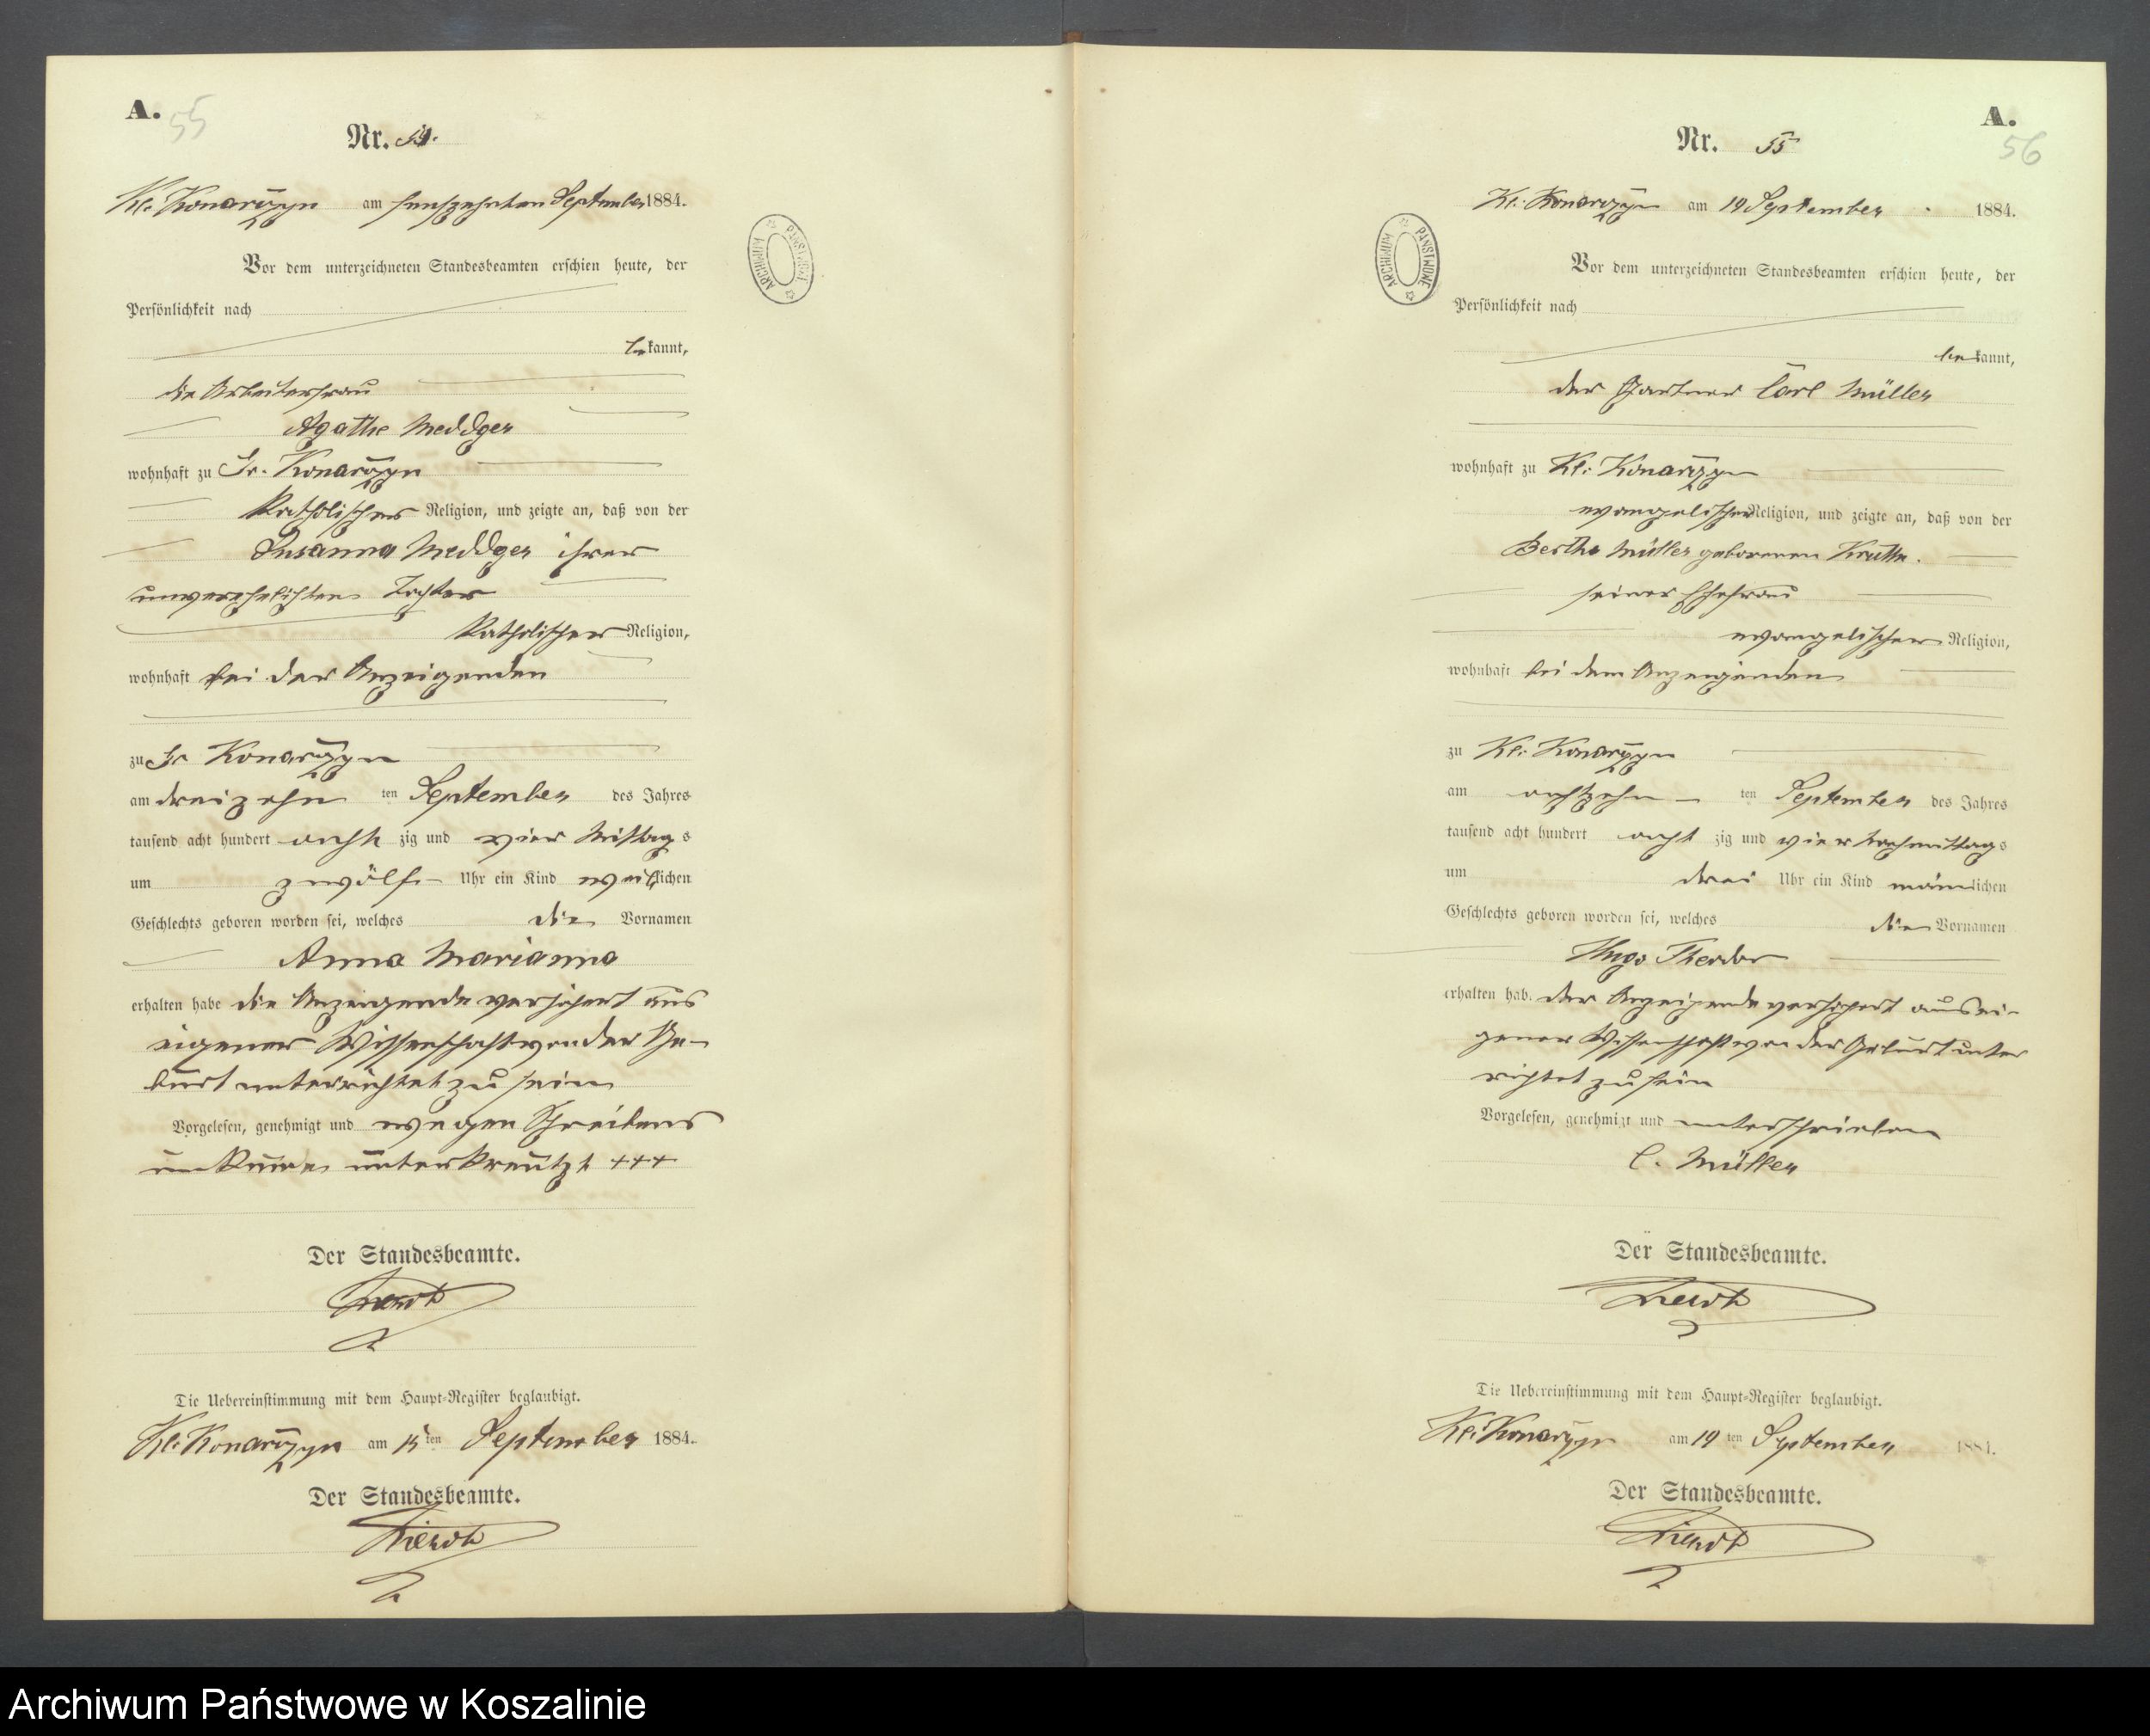 A.
55
Nr. 54.
Kl: Konarczyn am fünfzehnten September 1884.
Vor dem unterzeichneten Standesbeamten erschien heute, der
Persönlichkeit nach
bekannt,
die Arbeiterfrau
Agathe Meddger
wohnhaft zu Gr. Konarczyn
katholischer Religion, und zeigte an, daß von der
Susanna Meddger ihrer
unverehelichten Tochter
katholischer Religion,
wohnhaft bei der Anzeigenden
zu Gr Konarczyn
am dreizehn ten September des Jahres
tausend acht hundert acht zig und vier Mittag s
um zwölf Uhr ein Kind weiblichen
Geschlechts geboren worden sei, welches die Vornamen
Anna Marianna
erhalten habe die Anzeigende versichert aus
eigener Wissenschaft von der Ge-
burt unterrichtet zu sein
Vorgelesen, genehmigt und wegen Schreibens
unkunde unterkreutzt +++
Der Standesbeamte.
Die Uebereinstimmung mit dem Haupt-Register beglaubigt.
Kl: Konarczyn am 15 ten September 1884.
Der Standesbeamte.
ARCHIWUM PAŃSTWOWE
A.
56
Nr. 55
Kl: Konarczyn am 19 September 1884.
Vor dem unterzeichneten Standesbeamten erschien heute, der
Persönlichkeit nach
bekannt,
der Gärtner Carl Müller
wohnhaft zu Kl: Konarczyn
evangelischer Religion, und zeigte an, daß von der
Bertha Müller geborenen
seiner Ehefrau
evangelischer Religion,
wohnhaft bei dem Anzeigenden
zu Kl: Konarczyn
am achtzehn ten September des Jahres
tausend acht hundert acht zig und vier Nachmittag s
um drei Uhr ein Kind männlichen
Geschlechts geboren worden sei, welches die Vornamen
Hugo Theodor
erhalten hab. der Anzeigende versichert aus ei-
gener Wissenschaft von der Geburt unter
richtet zu sein
Vorgelesen, genehmigt und unterschrieben
C. Müller
Der Standesbeamte.
Die Uebereinstimmung mit dem Haupt-Register beglaubigt.
Kl: Konarczyn am 19 ten September 1884.
Der Standesbeamte.
ARCHIWUM PAŃSTWOWE
Archiwum Państwowe w Koszalinie